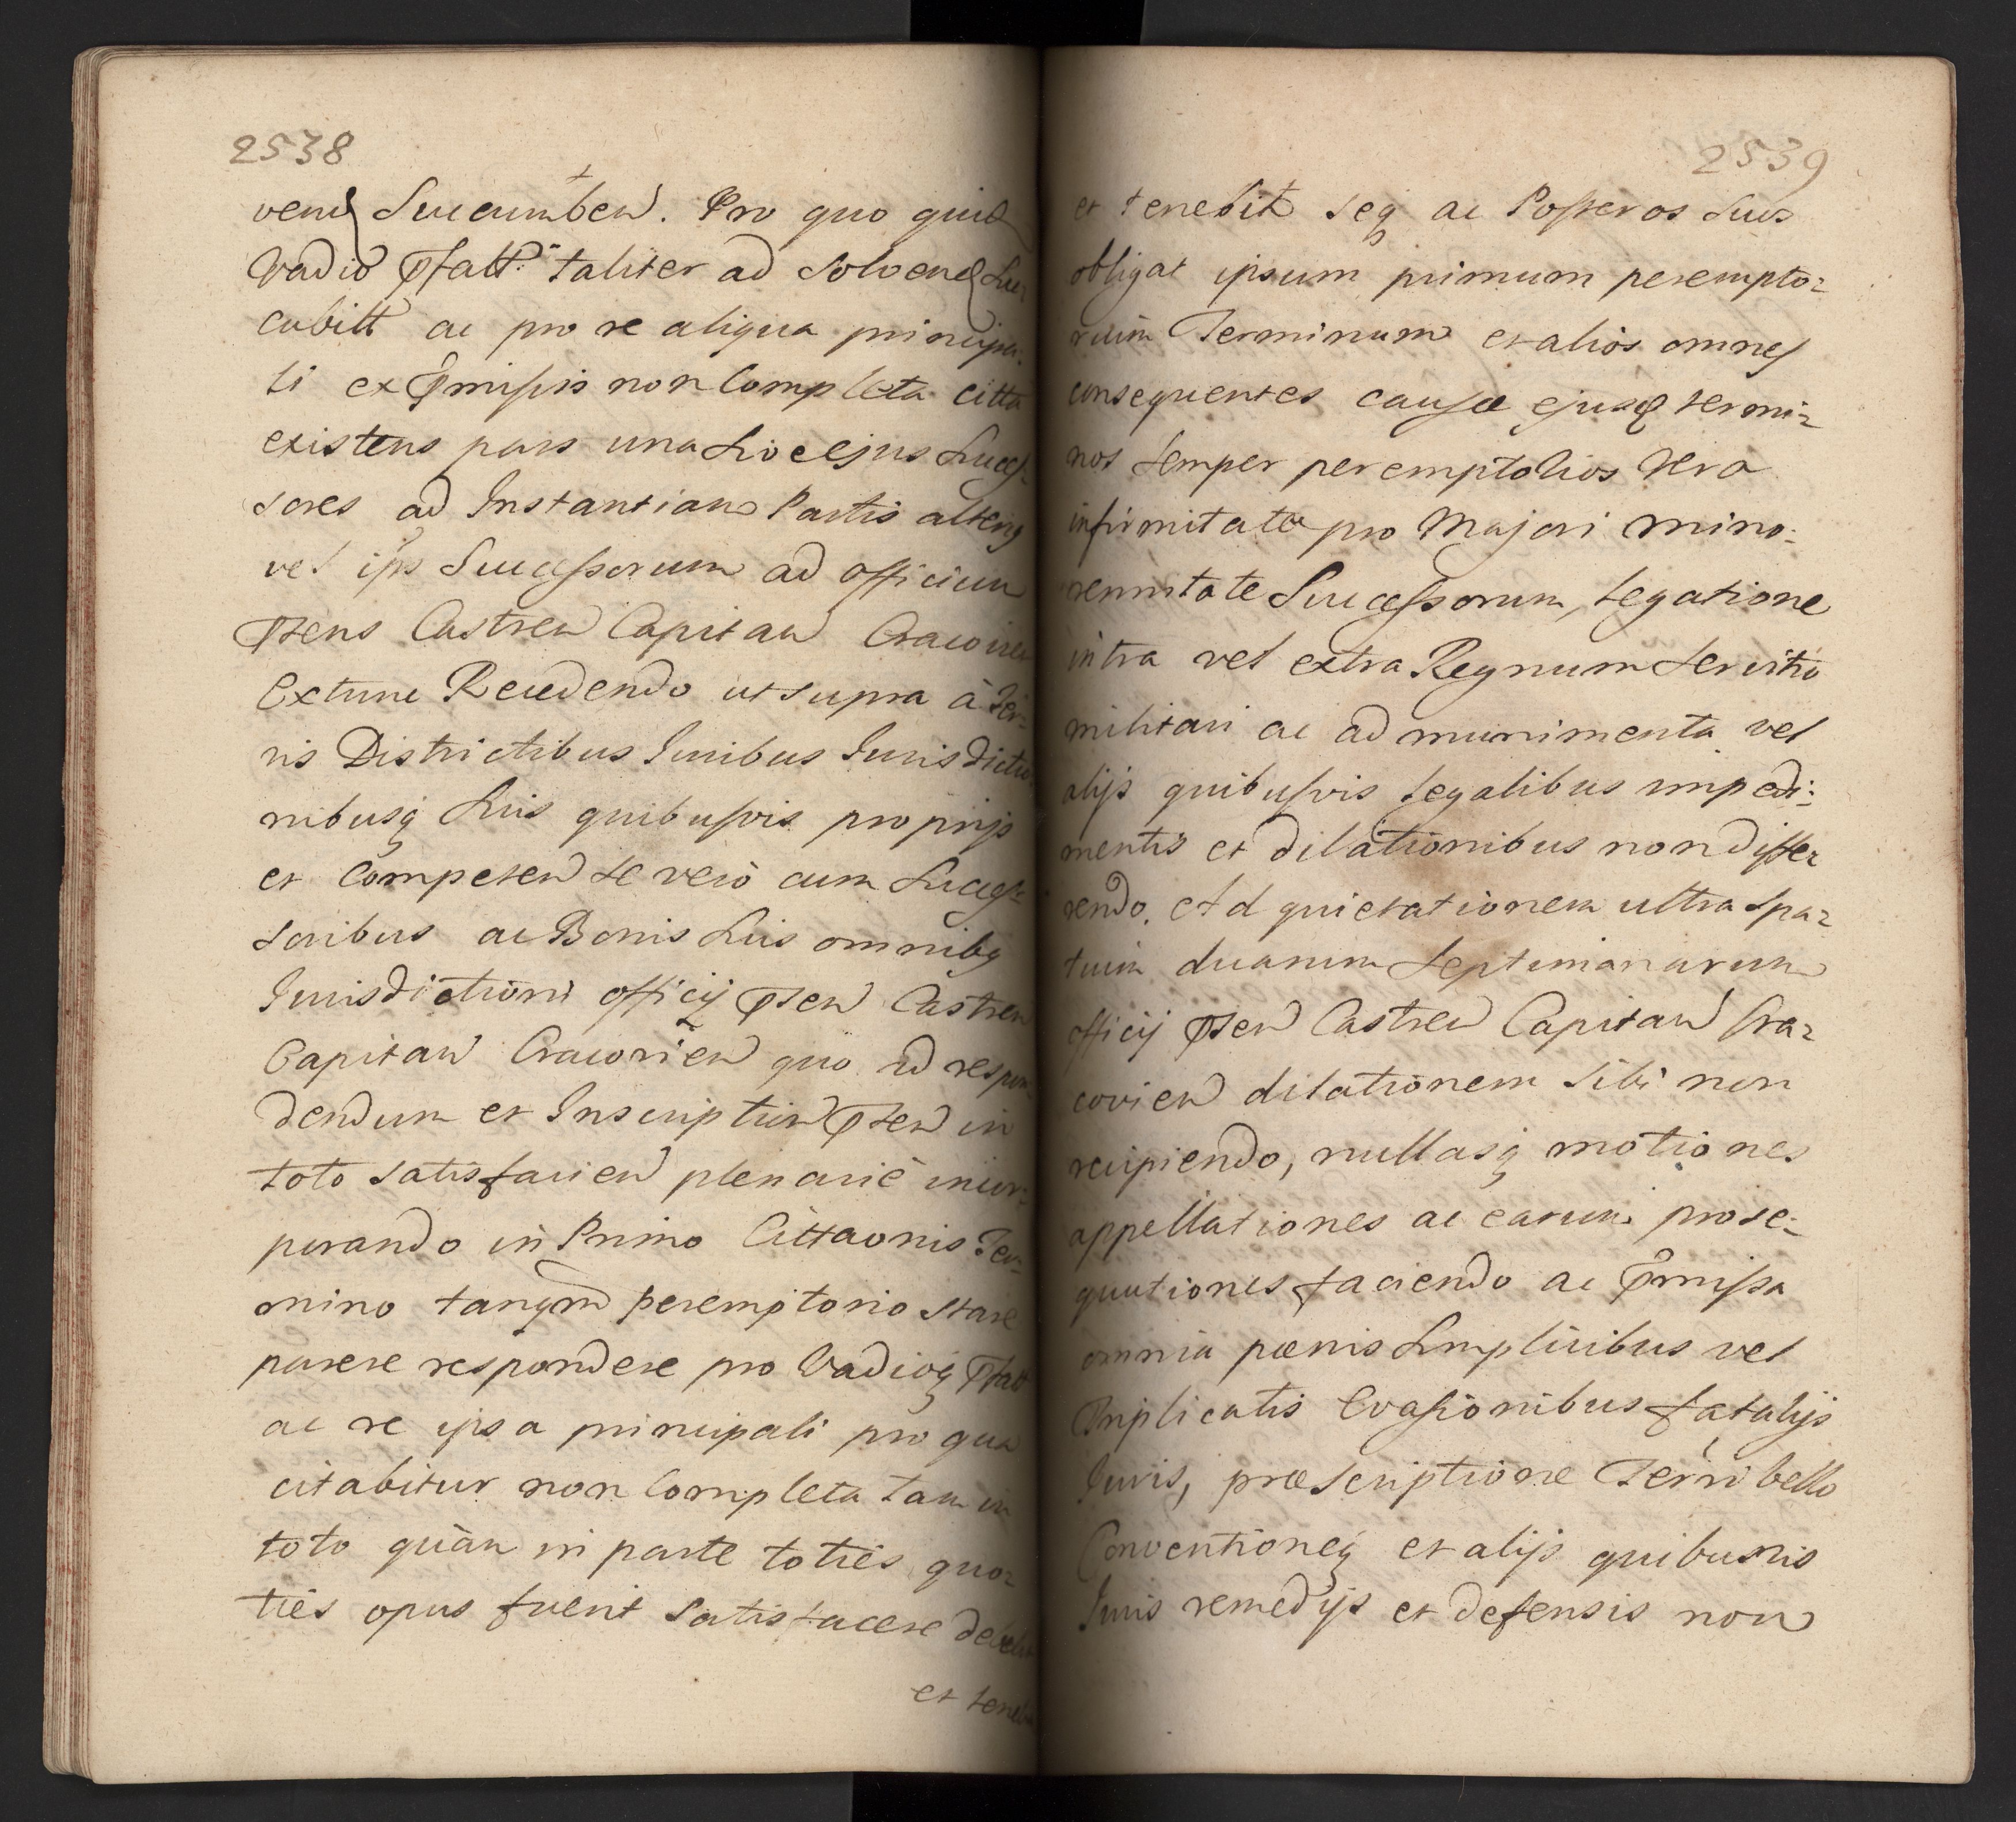 2538
vend Succumben. Pro quo quid
Vadio Pfatt taliter ad Solvend Suc
cubitt ac pro re aliqua principa-
li ex Pmissis non Completa citta
existens pars una Sive ejus Succes-
sores ad Instantiam Partis alterius
vel ips Successorum ad officium
Psens Castren Capitan Cracovien
Extunc Recedendo ut supra à Ter-
ris Districtibus Juribus Jurisdictio
nibusq Suis quibusvis proprijs
et Competen se verò cum Succes-
soribus ac Bonis Suis omnibq
Jurisdictioni officij Psen Castren
Capitan Cracovien quo ad respon
dendum et Inscriptioni Psen in
toto satisfacien plenariè incor-
porando in Primo Cittaonis Ter-
mino tanqm peremptorio Stare
parere respondere pro Vadioq Pfatt
ac re ipsa principali pro qua
citabitur non Completa tam in
toto quàm in parte totiès quo-
tiès opus fuerit Satisfacere debebit
et teneb
2539
et tenebit seq ac Posteros Suos
obligat ipsum primum perempto-
rium Terminum et alios omnes
consequentes causæ ejusd termi-
nos semper peremptorios Vera
infirmitate pro Majori mino-
rennitate Successorum, Legatione
intra vel extra Regnum Servitio
militari ac ad munimenta vel
alijs quibusvis legalibus impedi-
mentis et dilationibus non differ
rendo. Ad quietationem ultra spa-
tium duarum Septimanarum
officij Psen Castren Capitan Cra-
covien dilationem Sibi non
recipiendo, nullasq motiones
appellationes ac earum prose-
quutiones faciendo ac Pmissa
omnia pœnis Simplicibus vel
Triplicatis Evasionibus fatalijs
Juris, præscriptione Terri bello
Conventioneq et alijs quibusvis
Juris remedijs et defensis non